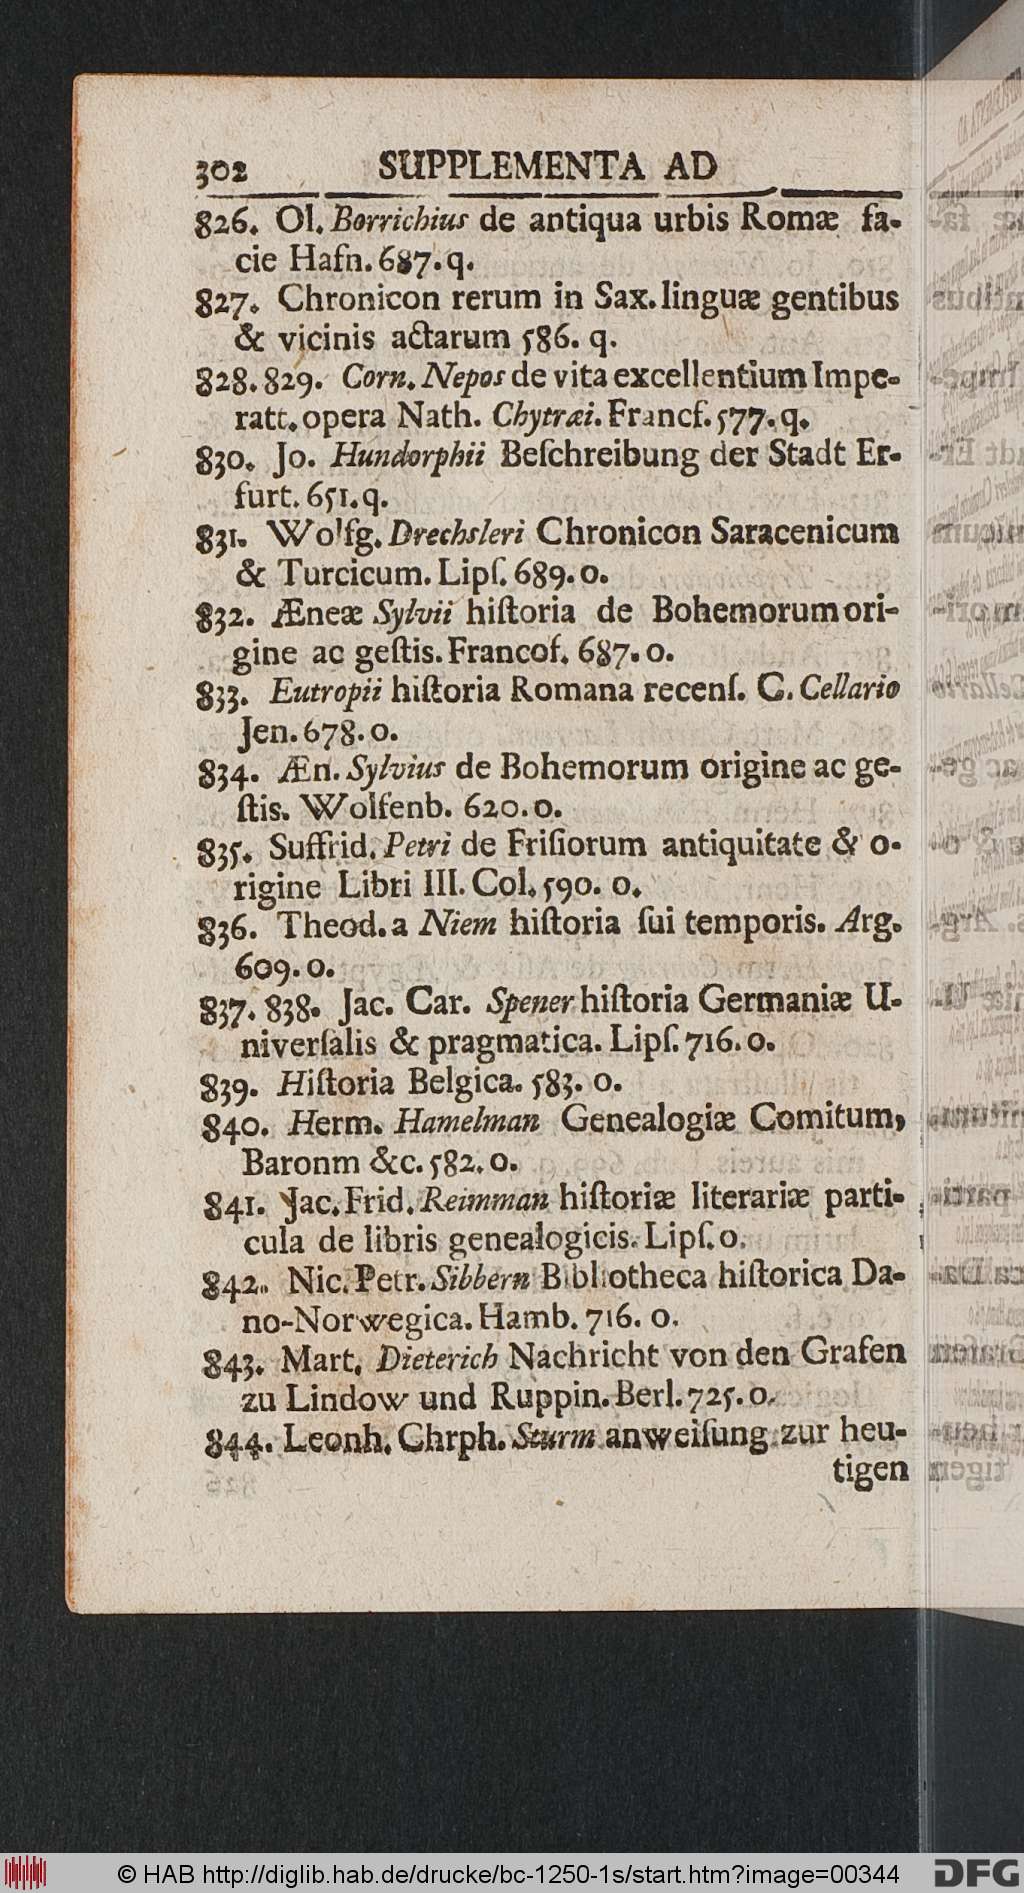 302 SUPPLEMENTA AD
826. Ol. Borrichius de antiqua urbis Romæ fa-
cie Hafn. 687. q.
827. Chronicon rerum in Sax. linguæ gentibus
& vicinis actarum 586. q.
828. 829. Corn. Nepos de vita excellentium Impe-
ratt. opera Nath. Chytræi. Francf. 577. q.
830. Jo. Hundorphii Beſchreibung der Stadt Er-
furt. 651. q.
831. Wolfg. Drechsleri Chronicon Saracenicum
& Turcicum. Lipſ. 689. o.
832. Æneæ Sylvii hiſtoria de Bohemorum ori-
gine ac geſtis. Francof. 687. o.
833. Eutropii hiſtoria Romana recenſ. C. Cellario
Jen. 678. o.
834. Æn. Sylvius de Bohemorum origine ac ge-
ſtis. Wolfenb. 620. o.
835. Suffrid. Petri de Friſiorum antiquitate & o-
rigine Libri III. Col. 590. o.
836. Theod. a Niem hiſtoria ſui temporis. Arg.
609. o.
837. 838. Jac. Car. Spener hiſtoria Germaniæ U-
niverſalis & pragmatica. Lipſ. 716. o.
839. Hiſtoria Belgica. 583. o.
840. Herm. Hamelman Genealogiæ Comitum,
Baronm &c. 582. o.
841. Jac. Frid. Reimman hiſtoriæ literariæ parti-
cula de libris genealogicis. Lipſ. o.
842. Nic. Petr. Sibbern Bibliotheca hiſtorica Da-
no-Norwegica. Hamb. 716. o.
843. Mart. Dieterich Nachricht von den Grafen
zu Lindow und Ruppin. Berl. 725. o.
844. Leonh. Chrph. Sturm anweiſung zur heu-
tigen
© HAB http://diglib.hab.de/drucke/bc-1250-1s/start.htm?image=00344
DFG